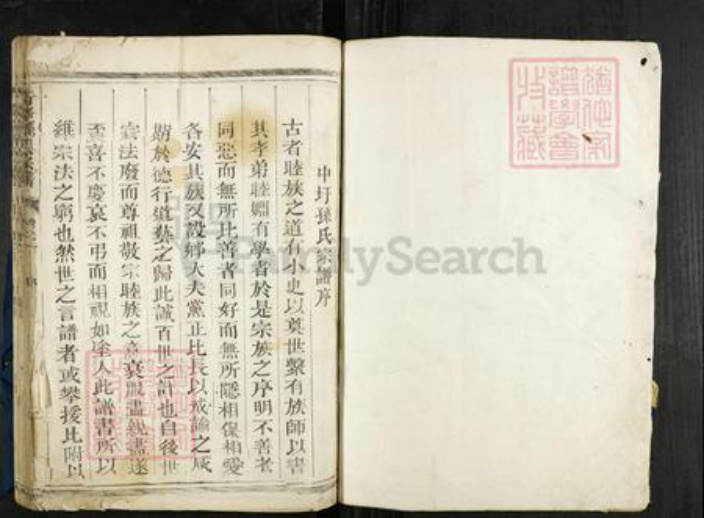 中圩孫氏宗譜序
古者睦族之道有小史以奠世繫有族師以書
其孝弟睦婣有學者於是宗族之序明不善者
同惡而無所比善者同好而無所隱相保相愛
各安其族又設鄉大夫黨正比長以戒諭之咸
於德行道藝之歸此誠百世之計也自後世
宗法廢而尊祖敬宗睦族之意衰服盡親盡遂
至喜不慶哀不弔而相視如途人此譜書所以
維宗法之窮也然世之言譜者或攀援比附以
譜學會
收藏
FamilySearch